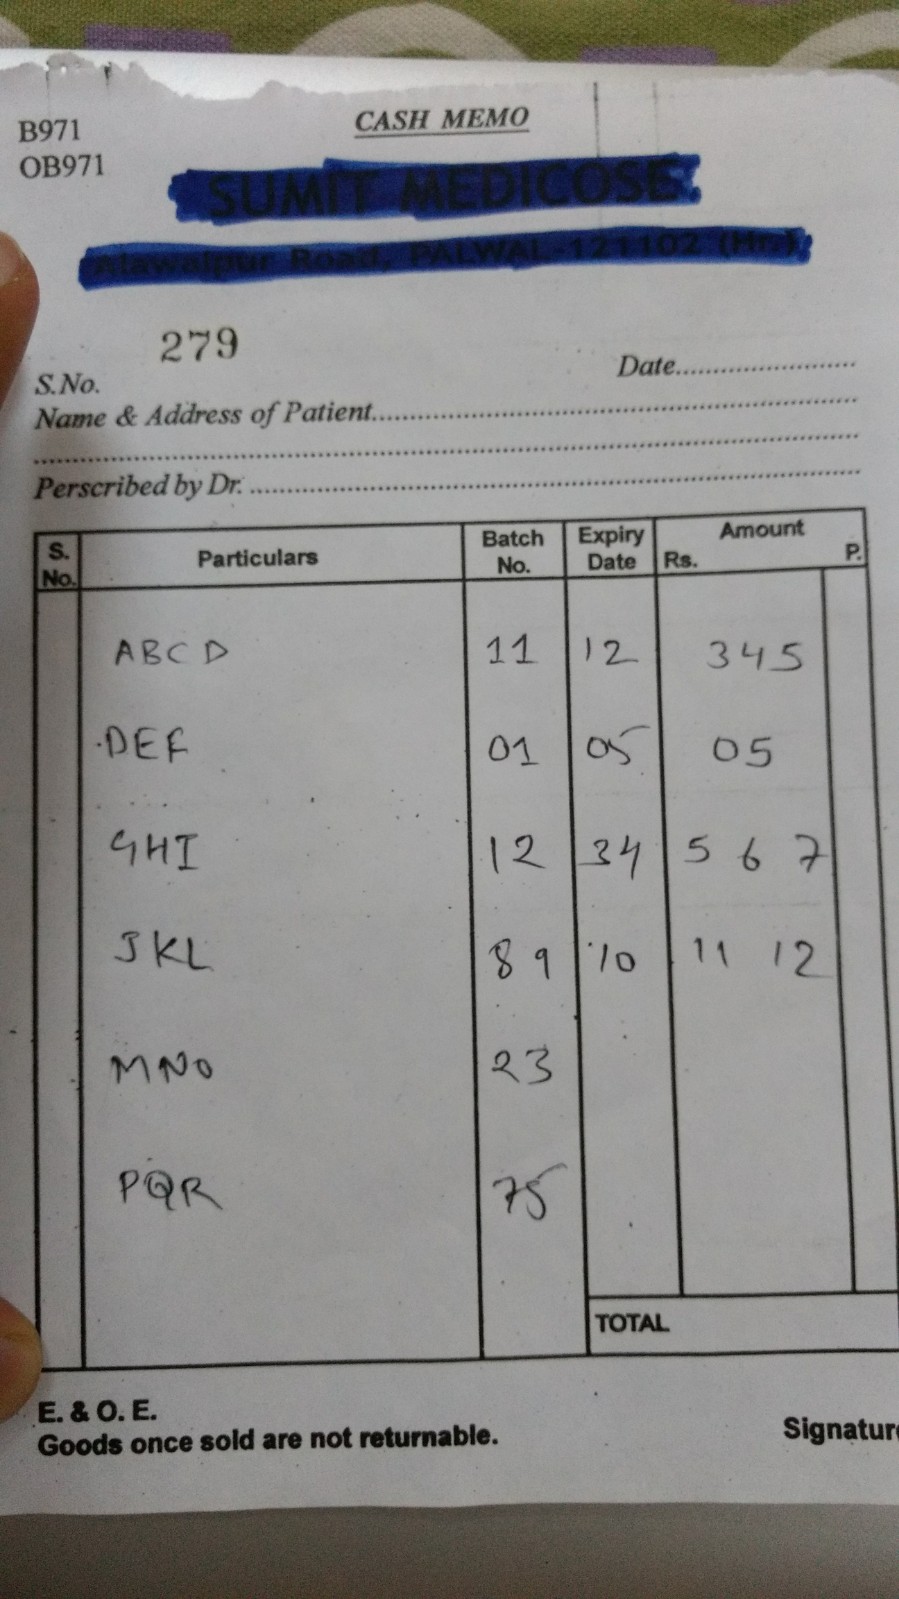 B971
OB971
CASH MEMO
SUMIT MEDICOSE
Alawalpur Road, PALWAL-121102 (Hr.)
279
S.No.
Date........................
Name & Address of Patient................................................
................................................................................
Perscribed by Dr. ................................................................
S. No. Particulars Batch No. Expiry Date Amount Rs. P.
ABCD 11 12 345
DEF 01 05 05
GHI 12 34 5 6 7
JKL 89 10 11 12
MNO 23
PQR 75
TOTAL
E. & O. E.
Goods once sold are not returnable.
Signature